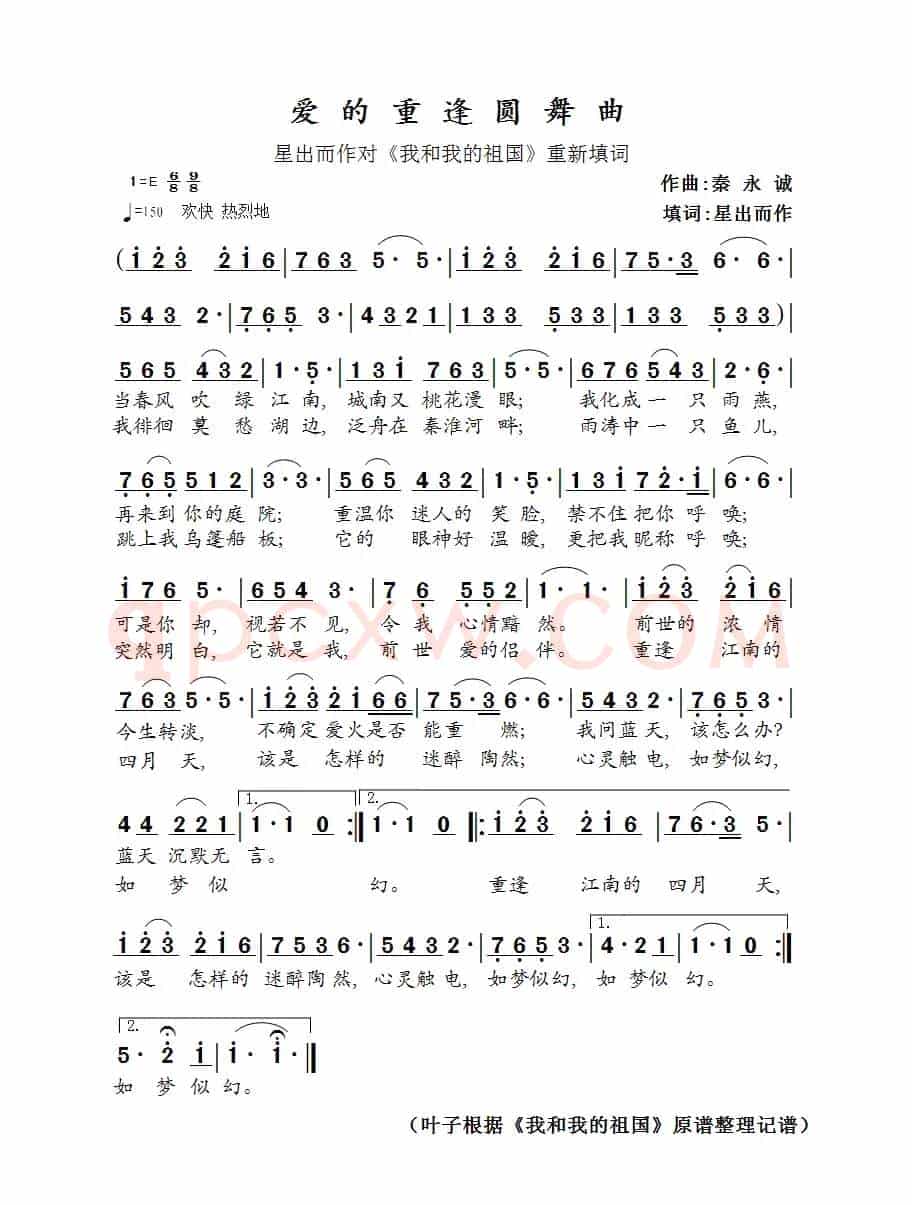 爱的重逢圆舞曲
星出而作对《我和我的祖国》重新填词
1=E 6/8 9/8 作曲:秦永诚
♩=150 欢快 热烈地 填词:星出而作
(1 2 3 2 1 6|7 6 3 5· 5·|1 2 3 2 1 6|7 5· 3 6· 6·|
5 4 3 2·|7 6 5 3·|4 3 2 1|1 3 3 5 3 3|1 3 3 5 3 3)|
5 6 5 4 3 2|1· 5·|1 3 1 7 6 3|5· 5·|6 7 6 5 4 3|2· 6·|
当春风 吹 绿 江南, 城南又 桃花漫 眼; 我化成一 只 雨 燕,
我徘徊 莫 愁 湖 边, 泛舟在 秦淮河 畔; 雨涛中一 只 鱼 儿,
7 6 5 5 1 2|3· 3·|5 6 5 4 3 2|1· 5·|1 3 1 7 2· 1|6· 6·|
再来到 你的庭 院; 重温你 迷人的 笑 脸, 禁不住把你 呼 唤;
跳上我 乌篷船 板; 它的 眼神好 温 暖, 更把我 昵称 呼 唤;
1 7 6 5·|6 5 4 3·|7 6 5 5 2|1· 1·|1 2 3 2 1 6|
可是你 却, 视若不 见, 令 我 心情黯 然。 前世的 浓 情
突然明 白, 它就是 我, 前 世 爱的侣 伴。 重逢 江南的
7 6 3 5· 5·|1 2 3 2 1 6 6|7 5· 3 6· 6·|5 4 3 2·|7 6 5 3·|
今生转淡, 不确定 爱火是否 能重 燃; 我问蓝天, 该怎么办?
四月 天, 该是 怎样的 迷醉 陶然; 心灵触电, 如梦似幻,
1. 2.
4 4 2 2 1|1· 1 0 :|1· 1 0 |: 1 2 3 2 1 6|7 6· 3 5·|
蓝天 沉默无 言。
如 梦 似 幻。 重逢 江南的 四月 天,
1.
1 2 3 2 1 6|7 5 3 6·|5 4 3 2·|7 6 5 3·|4· 2 1|1· 1 0 :|
该是 怎样的 迷醉陶然, 心灵触 电, 如梦似幻, 如 梦似 幻。
2.
5· 2 1|1· 1·|
如 梦 似 幻。
（叶子根据《我和我的祖国》原谱整理记谱）
qpcxw.com